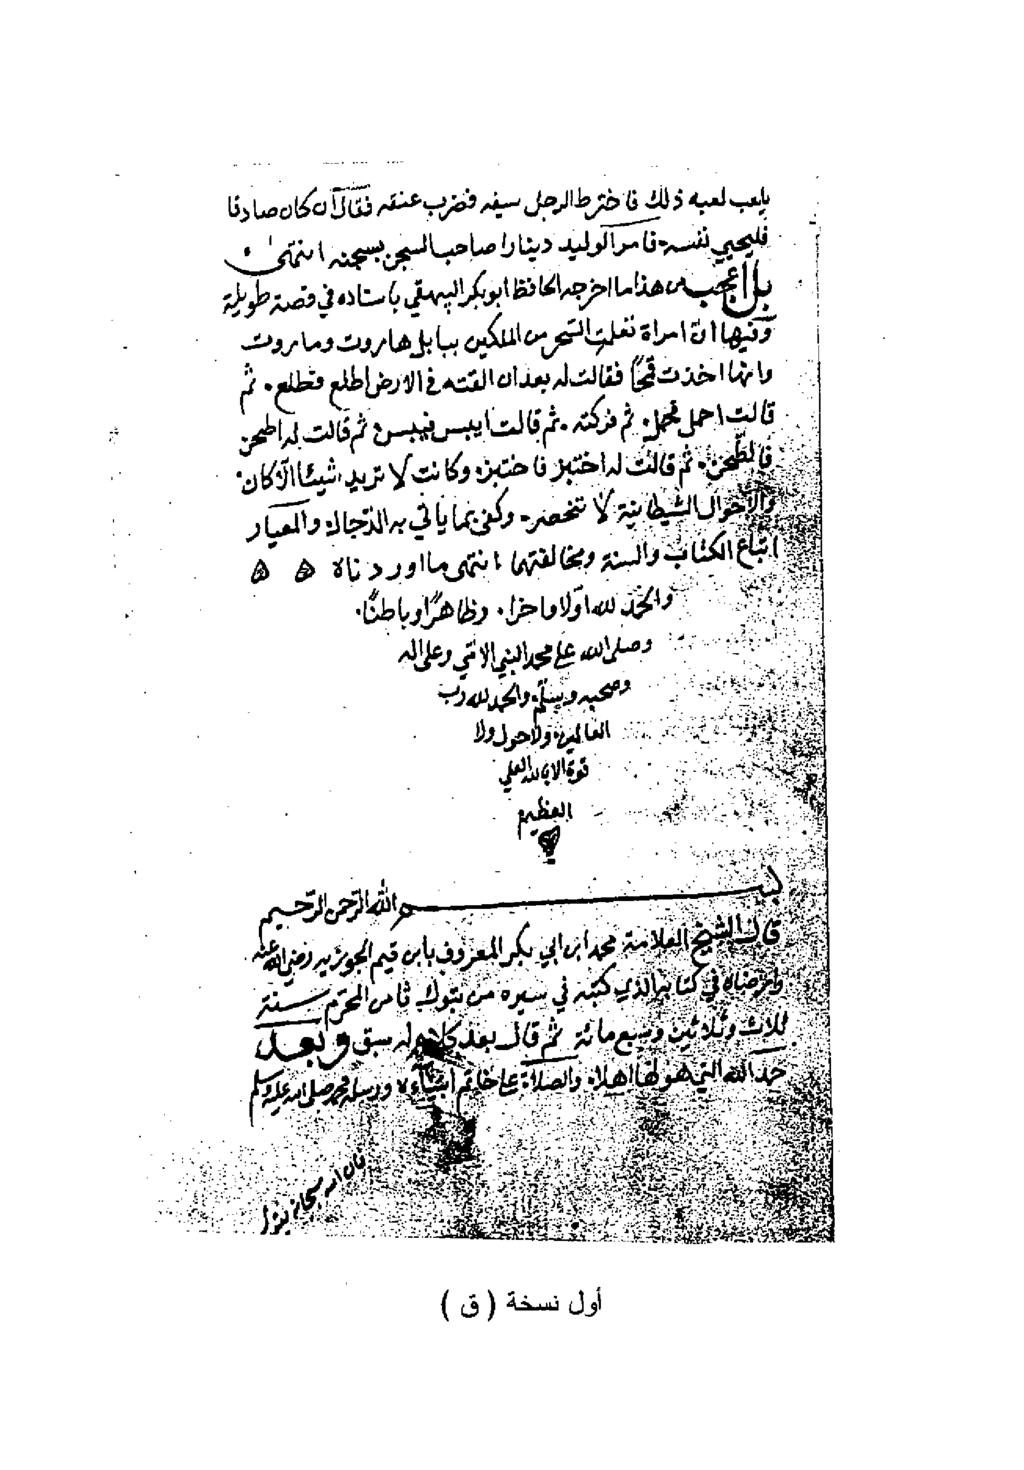 يلعب لعبه ذلك فاخترط الرجل سيفه فضرب عنقه فقال ان كان صادقا
فليحيي نفسه. فامر الوليد دينارا صاحب السجن بسجنه انتهى
بل اعجب من هذا ما اخرجه الحافظ ابو بكر البيهقي باسناده في قصة طويلة
وفيها ان امراة تعلمت السحر من الملكين ببابل هاروت وماروت
وانها اخذت قمحًا فقالت له بعد ان القته في الارض اطلع فطلع. ثم
قالت احمل فحمل. ثم فركته. ثم قالت ايبس فيبس. ثم قالت له اطحن
فانطحن. ثم قالت له اختبز فاختبز. وكانت لا تريد شيئا الا كان.
والاحوال الشيطانية لا تنحصر. وكفى بما ياتي به الدجال. والمعيار
اتباع الكتاب والسنة ومخالفتهما انتهى ما اوردناه ه ه
والحمد لله اولا واخرا. وظاهرًا وباطنًا.
وصلى الله على محمد النبي الامي وعلى اله
وصحبه وسلم. والحمد لله رب
العالمين. ولا حول ولا
قوة الا بالله العلي
العظيم
بسم الله الرحمن الرحيم
قال الشيخ العلامة محمد ابن ابي بكر المعروف بابن قيم الجوزيه رضي الله عنه
وارضاه في كتابه الذي كتبه في سيره من تبوك ثامن المحرم سنة
ثلاث وثلاثين وسبع مائة ثم قال بعد كلام له سبق وبعد
حمد الله التي هو لها اهلا. والصلاة على خاتم انبياءه ورسله محمد صلى الله عليه وسلم
فان الله سبحانه يقول
أول نسخة ( ق )